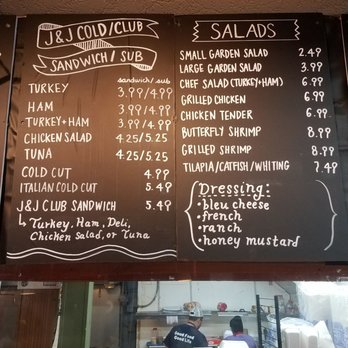 J&J COLD/CLUB
SANDWICH/SUB
sandwich/sub
TURKEY 3.99/4.99
HAM 3.99/4.99
TURKEY+HAM 3.99/4.99
CHICKEN SALAD 4.25/5.25
TUNA 4.25/5.25
COLD CUT 4.99
ITALIAN COLD CUT 5.49
J&J CLUB SANDWICH 5.49
Turkey, Ham, Deli,
Chicken Salad, or Tuna
SALADS
SMALL GARDEN SALAD 2.49
LARGE GARDEN SALAD 3.99
CHEF SALAD (TURKEY+HAM) 6.99
GRILLED CHICKEN 6.99
CHICKEN TENDER 6.99
BUTTERFLY SHRIMP 8.99
GRILLED SHRIMP 8.99
TILAPIA/CATFISH/WHITING 7.49
Dressing:
•bleu cheese
•french
•ranch
•honey mustard
Good Food
Good Life